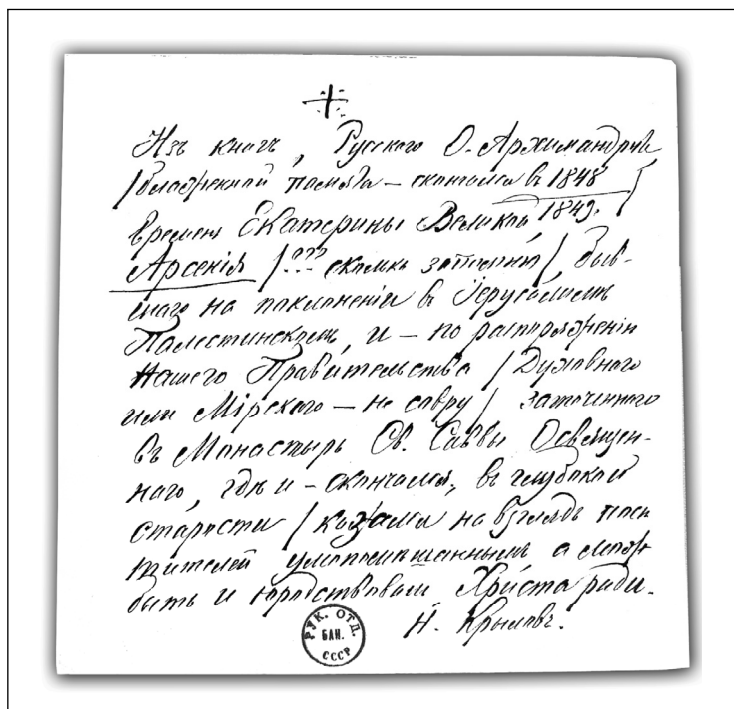 Изъ книгъ, Русскаго О. Архимандрита
/блаженной памяти — скончался въ 1848
Времени Екатерины Великой, 1849. /
Арсенія /??? сколько запомню/ быв-
шаго на поклоненіи въ Іерусалимѣ
Палестинскомъ, и — по распоряженію
Нашего Правительства / Духовнаго
или Мірскаго — не совру / заточеннаго
въ Монастырь Св. Саввы Освящен-
наго, гдѣ и — скончался, въ глубокой
старости / казался на взглядъ посѣ
тителей умопомѣшаннымъ а можѣ
быть и юродствовалъ Христа ради.
Н. Крыловъ.
РУК. ОТД.
БАН.
СССР